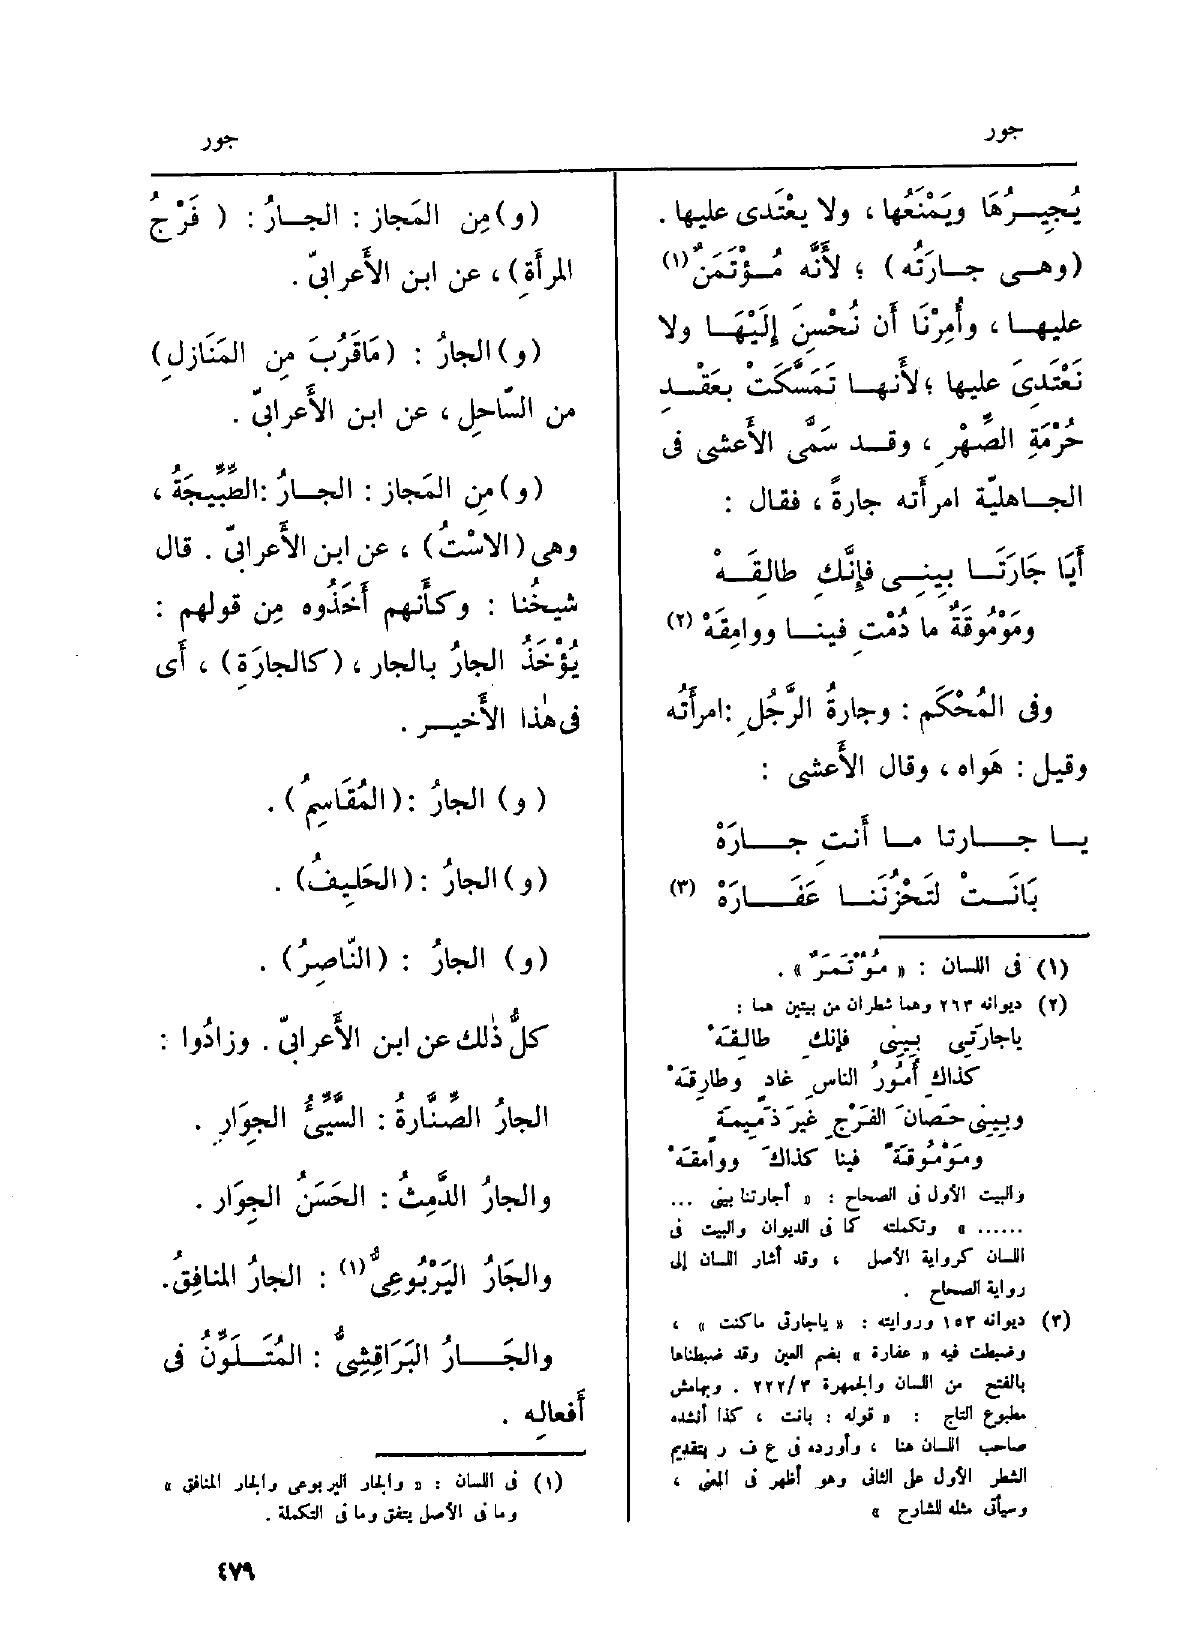 جور
جور
يُجِيــرُهَا ويَمْنَعُها ، ولا يعْتَدى عليها .
(وهــى جــارَتُه) ؛ لأَنَّه مُــؤْتَمَنٌ (١)
عليهــا ، وأُمِرْنَا أَن نُحْسِنَ إِلَيْهَــا ولا
نَعْتَدِىَ عليها ؛ لأَنهــا تَمَسَّكَتْ بعَقْــدِ
حُرْمَةِ الصِّهْرِ ، وقــد سَمَّى الأَعشى فى
الجــاهليّة امرأَته جارةً ، فقال :
أَيَا جَارَتَــا بِينِــى فإِنَّكِ طالِقَــهْ
ومَوْمُوقَةٌ ما دُمْتِ فينــا ووامِقَهْ (٢)
وفى المُحْكَم : وجارةُ الرَّجُلِ : امرأَتُه
وقيل : هَواه ، وقال الأَعشى :
يــا جــارتا مــا أَنتِ جــارَهْ
بَانَــتْ لتَحْزُنَنــا عَفَــارَهْ (٣)
(١) فى اللسان : « مُؤْتَمَرٌ » .
(٢) ديوانه ٢٦٣ وهما شطران من بيتين هما :
ياجارَتِى بِينِى فإنك طالِقَهْ
كذاكِ أُمُورُ الناسِ غادٍ وطارِقَهْ
وبِينِى حَصَانَ الفَرْجِ غيرَ ذَمِيمَةٍ
ومَوْمُوقَةً فينا كذاكَ ووامِقَهْ
والبيت الأول فى الصحاح : « أجارتنا بينى ...
...... » وتكملته كما فى الديوان والبيت فى
اللسان كرواية الأصل ، وقد أشار اللسان إلى
رواية الصحاح .
(٣) ديوانه ١٥٣ وروايته : « ياجارتى ماكنت » ،
وضبطت فيه « عفارة » بضم العين وقد ضبطناها
بالفتح من اللسان والجمهرة ٢٢٢/٣ . وبهامش
مطبوع التاج : « قوله : بانت ، كذا أنشده
صاحب اللسان هنا ، وأورده فى ع ف ر بتقديم
الشطر الأول على الثانى وهو أظهر فى المعنى ،
وسيأتى مثله للشارح »
(و) مِن المَجاز : الجــارُ : ( فَرْجُ
المرأَةِ) ، عن ابن الأَعرابىّ .
(و) الجارُ : (مَاقَرُبَ مِن المَنَازلِ)
من السّاحِلِ ، عن ابن الأَعرابىّ .
(و) مِن المَجاز : الجــارُ : الطِّبِّيجَةُ ،
وهى (الاسْتُ) ، عن ابن الأَعرابىّ . قال
شيخُنا : وكأَنهم أَخَذُوه مِن قولهم :
يُؤْخَذُ الجارُ بالجار ، (كالجارَةِ) ، أَى
فى هٰذا الأَخيــر .
(و) الجارُ : (المُقَاسِمُ) .
(و) الجارُ : (الحَلِيفُ) .
(و) الجارُ : (النّاصِرُ) .
كلُّ ذٰلك عن ابن الأَعرابىّ . وزادُوا :
الجارُ الصِّنَّارةُ : السَّيِّئُ الجِوَارِ .
والجارُ الدَّمِثُ : الحَسَنُ الجِوَار .
والجَارُ اليَرْبُوعِىُّ (١) : الجارُ المنافِقُ .
والجَــارُ البَرَاقِشِىُّ : المُتَــلَوِّنُ فى
أَفعالِه .
(١) فى اللسان : « والجار اليربوعى والجار المنافق »
وما فى الأصل يتفق وما فى التكملة .
٤٧٩